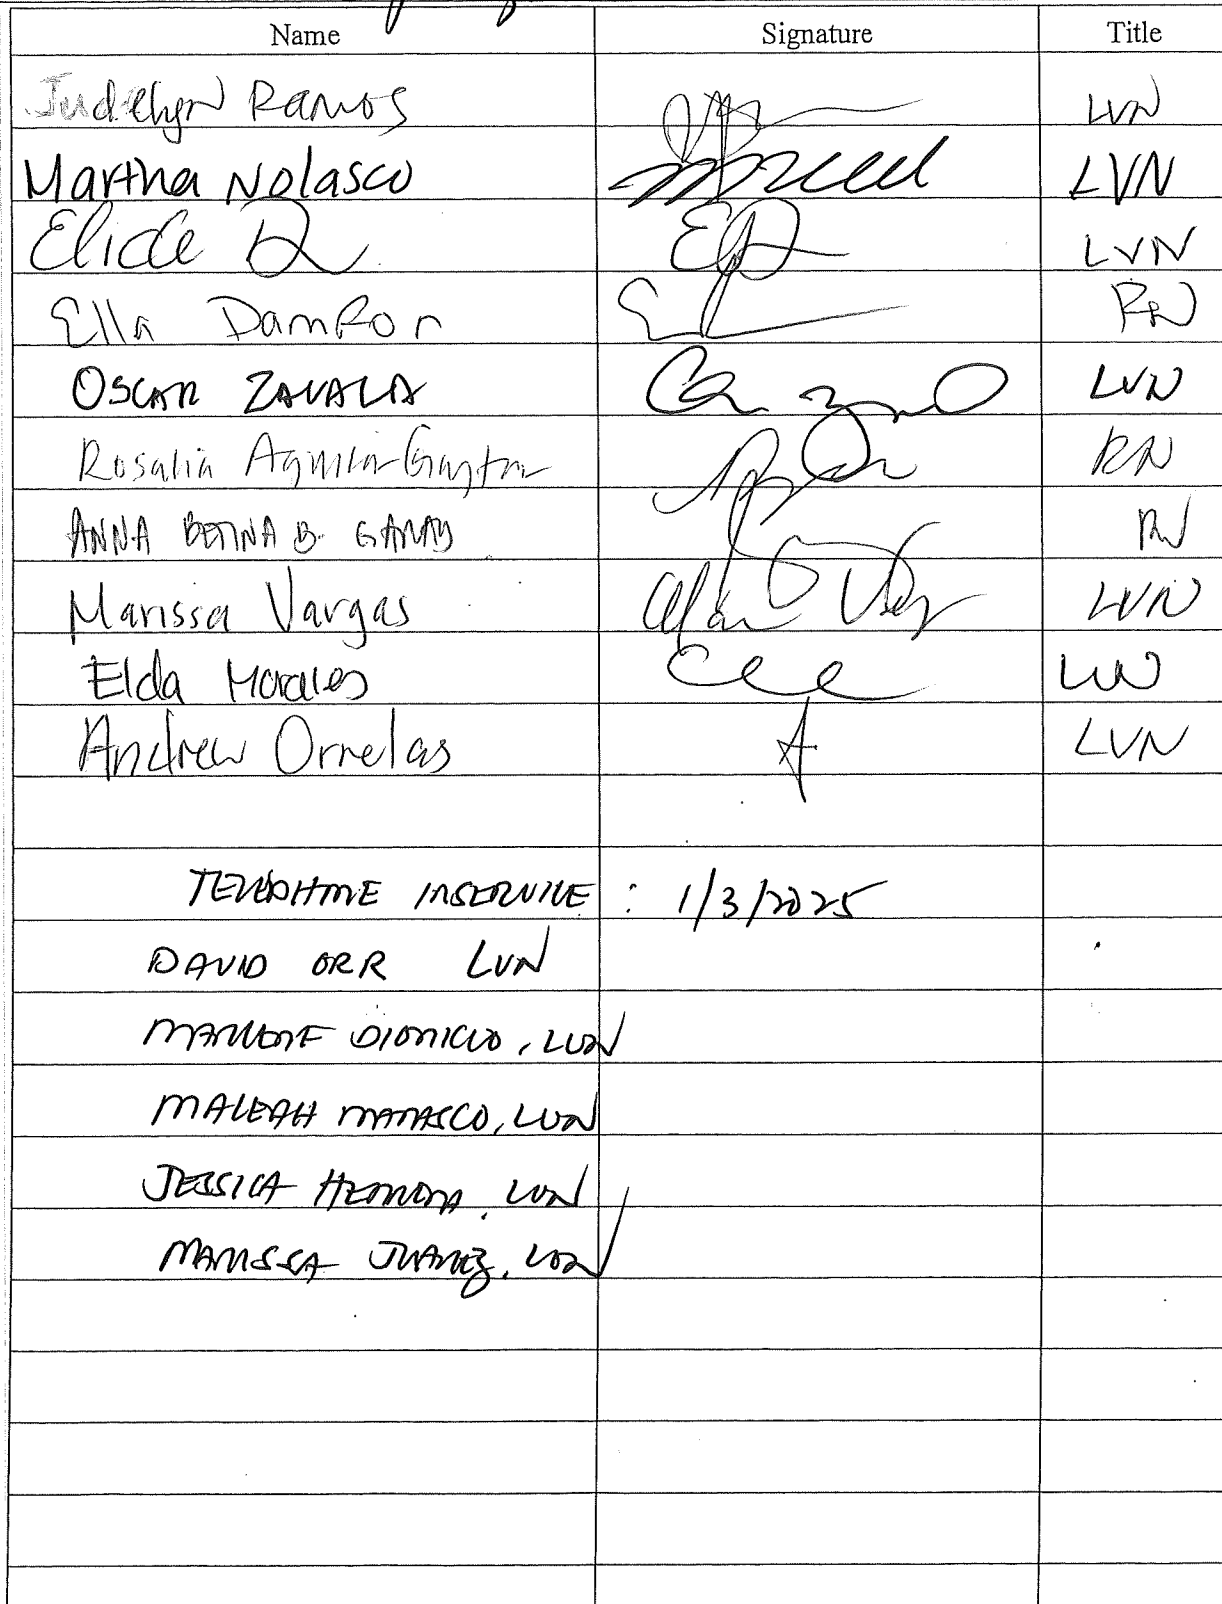 Name Signature Title
Judelyn Ramos LVN
Martha Nolasco LVN
Elide R LVN
Ella Damfor RN
OSCAR ZAVALA LVN
Rosalia RN
ANNA BETINA B. RN
Marissa Vargas LVN
Elda Morales LVN
Andrew Ornelas LVN
TELEPHONE INSERVICE : 1/3/2025
DAVID ORR LVN
DIONICIO, LVN
MALEAH LVN
JESSICA LVN
MARISSA JUAREZ, LVN